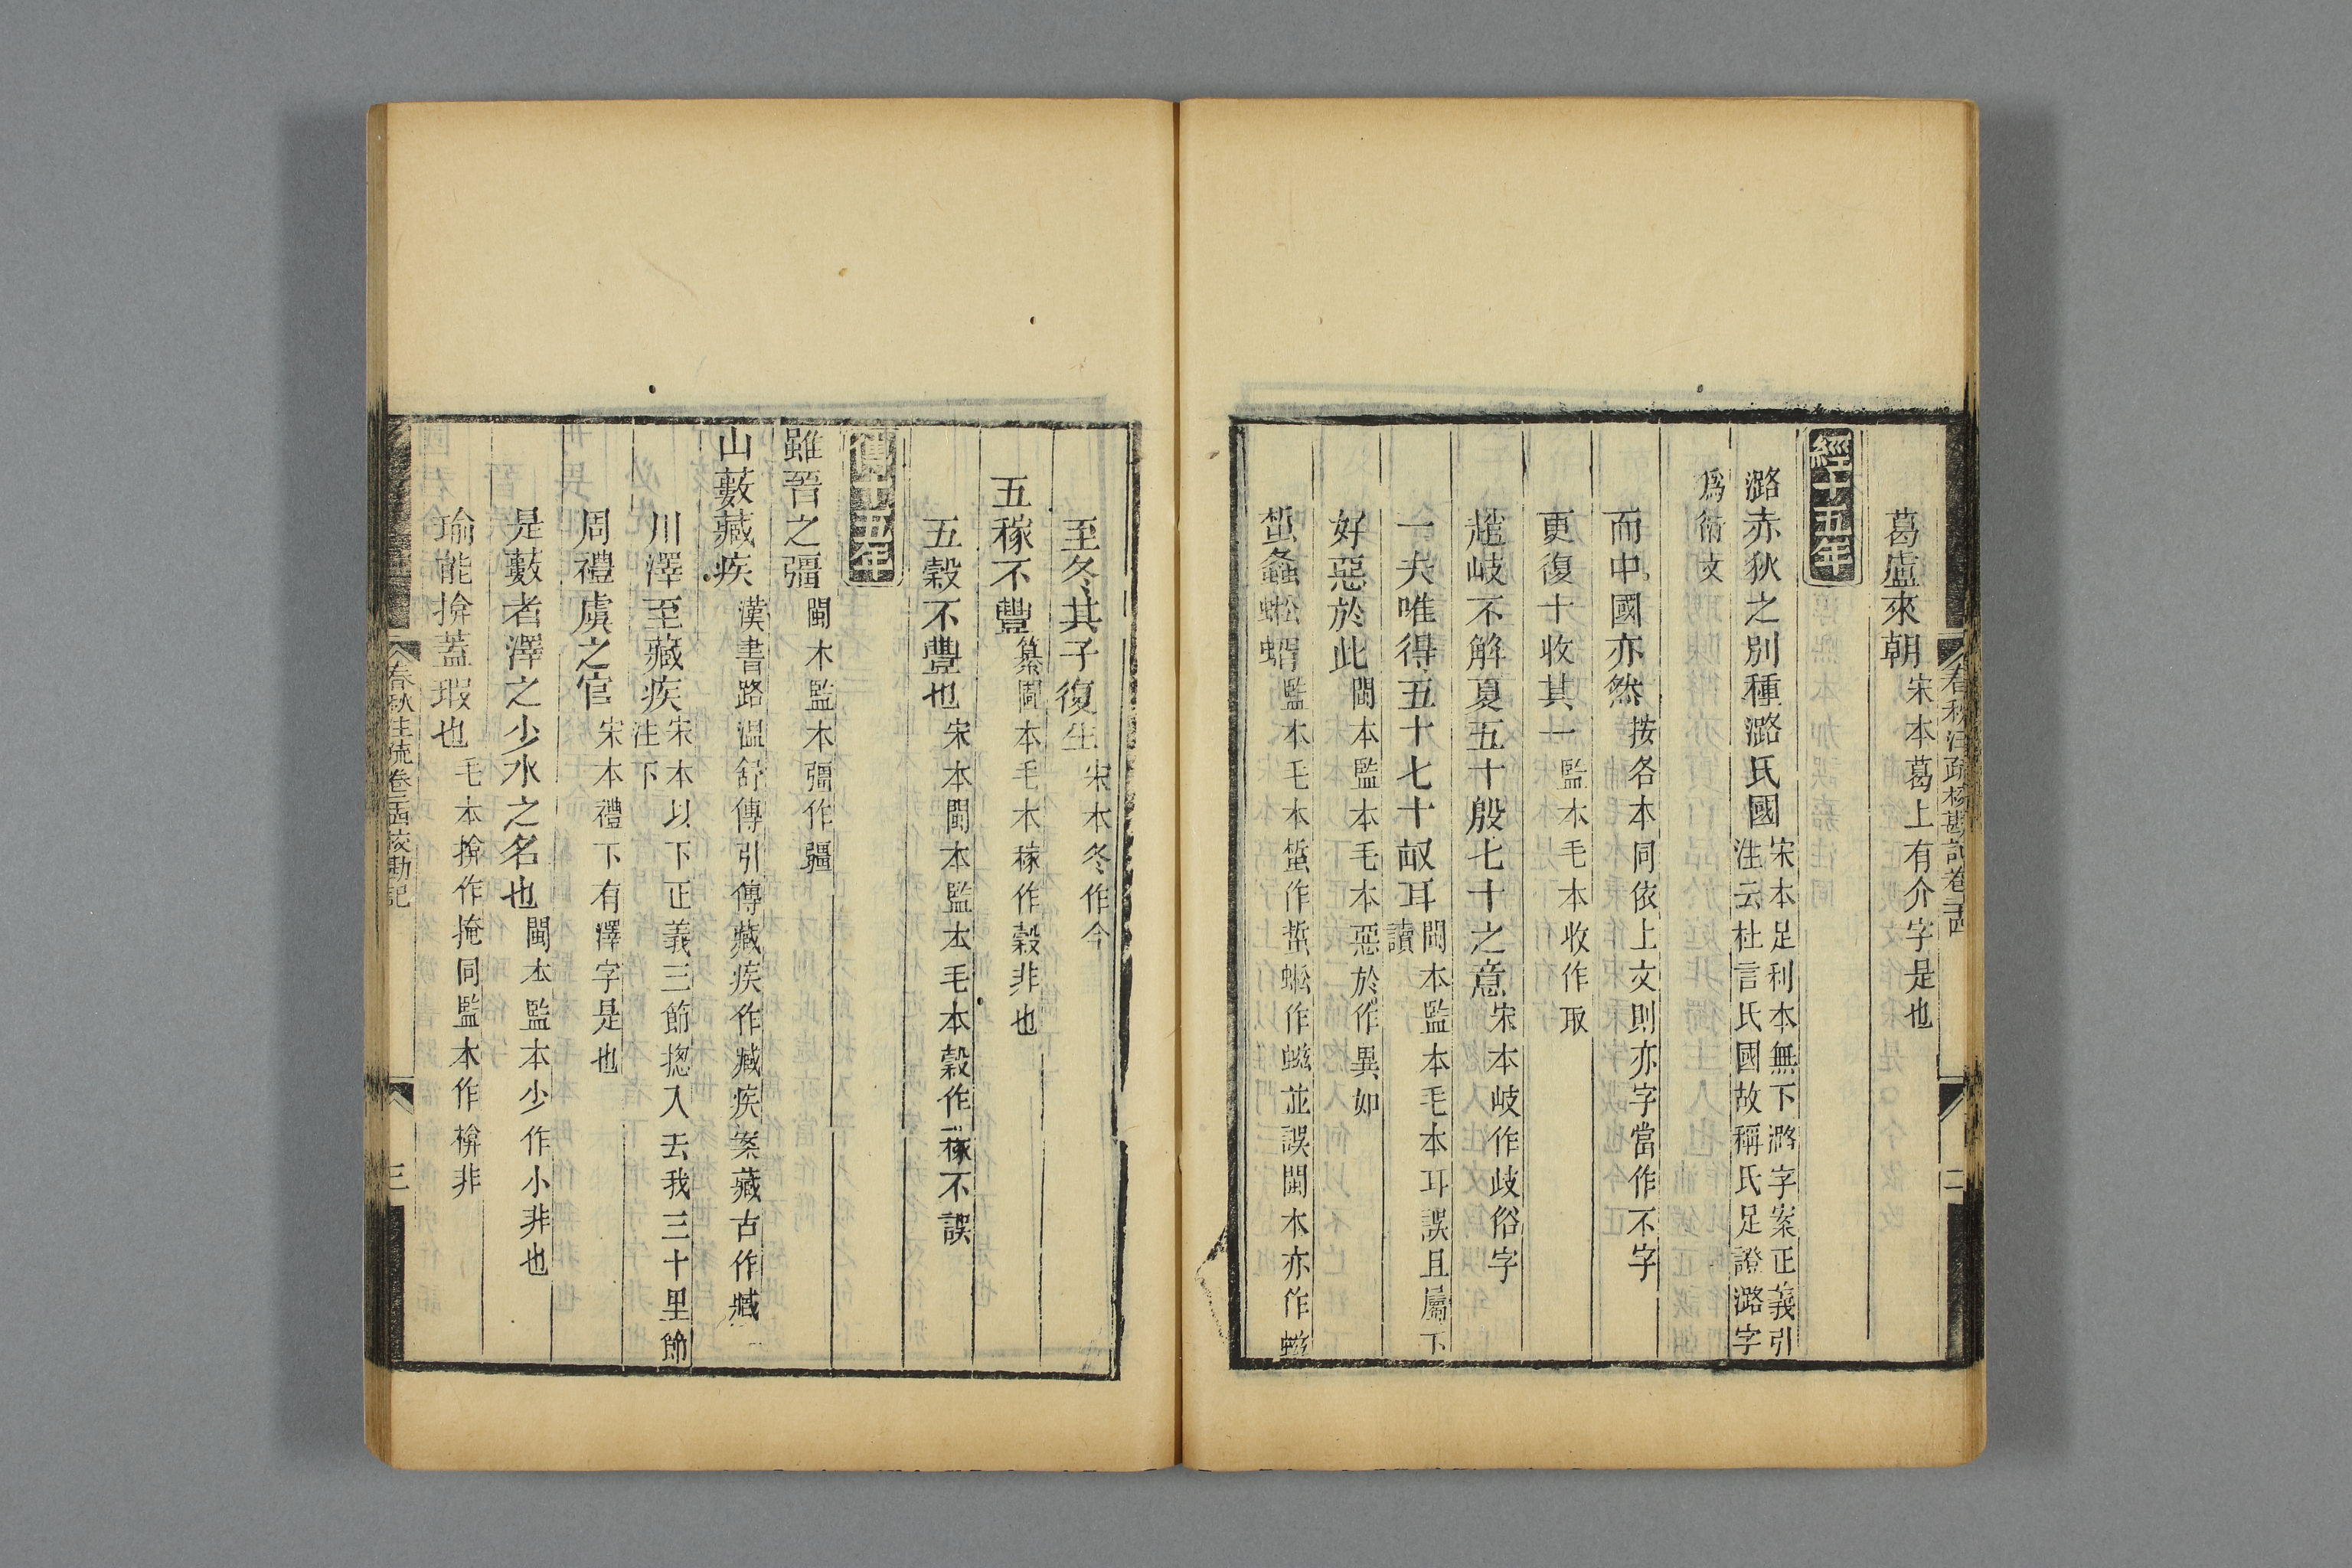 春秋注疏校勘記卷二十四
二
葛盧來朝宋本葛上有介字是也
經十五年
潞赤狄之別種潞氏國宋本足利本無下潞字案正義引注云杜言氏國故稱氏足證潞字
爲衍文
而中國亦然按各本同依上文則亦字當作不字
更復十收其一監本毛本收作取
趙岐不解夏五十殷七十之意宋本岐作歧俗字
一夫唯得五十七十畝耳閩本監本毛本耳誤且屬下讀
好惡於此閩本監本毛本惡於作異如
蜇螽蜙蝑監本毛本蜇作蜤蜙作蚣並誤閩本亦作蚣
至冬其子復生宋本冬作今
五稼不豐纂圖本毛本稼作穀非也
五穀不豐也宋本閩本監本毛本穀作稼不誤
傳十五年
雖晉之彊閩本監本彊作疆
山藪藏疾漢書路溫舒傳引傳藏疾作臧疾案藏古作臧
川澤至藏疾宋本以下正義三節揔入去我三十里節注下
周禮虞之官宋本禮下有澤字是也
是藪者澤之少水之名也閩本監本少作小非也
瑜能揜蓋瑕也毛本揜作掩同監本作楈非
春秋注疏卷二十四校勘記
三